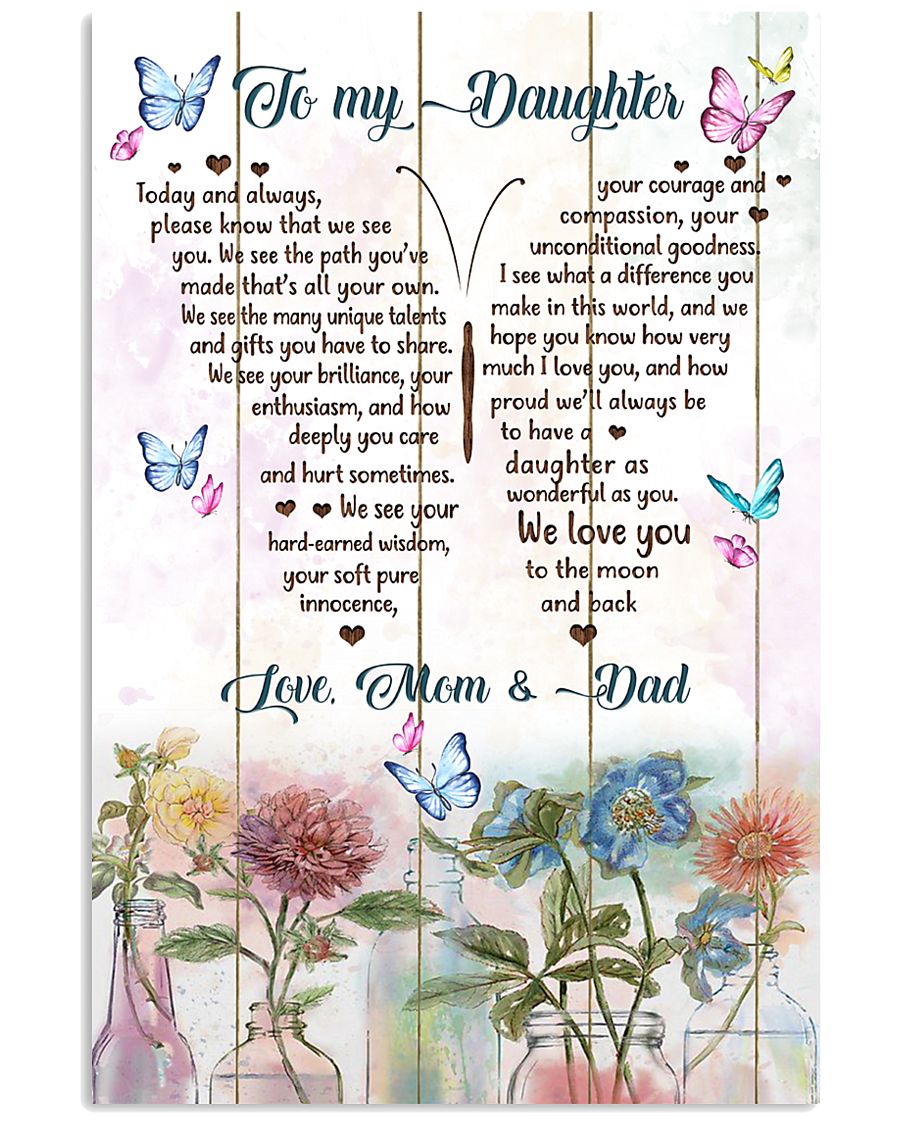 To my Daughter
Today and always,
please know that we see
you. We see the path you've
made that's all your own.
We see the many unique talents
and gifts you have to share.
We see your brilliance, your
enthusiasm, and how
deeply you care
and hurt sometimes.
We see your
hard-earned wisdom,
your soft pure
innocence,
your courage and
compassion, your
unconditional goodness.
I see what a difference you
make in this world, and we
hope you know how very
much I love you, and how
proud we'll always be
to have a
daughter as
wonderful as you.
We love you
to the moon
and back
Love, Mom & Dad